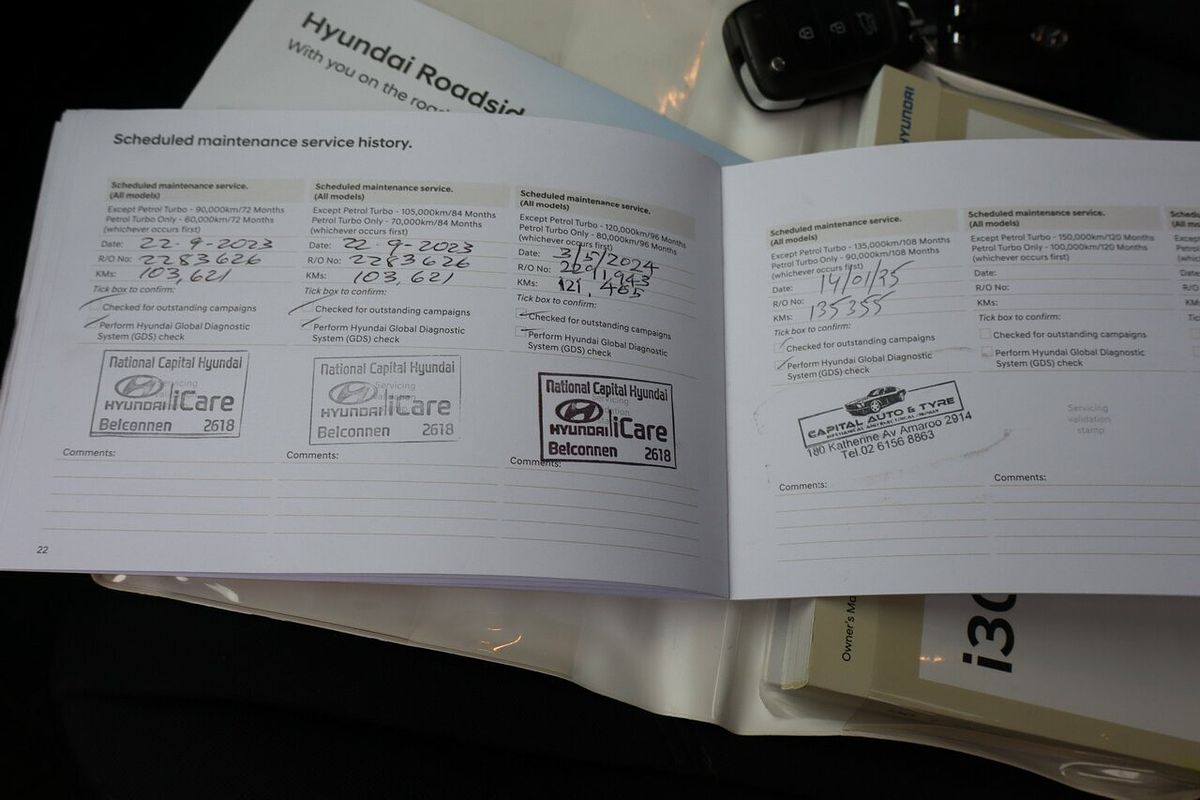 Hyundai Roadsid
With you on the road
HYUNDAI
Scheduled maintenance service history.
Scheduled maintenance service.
(All models)
Except Petrol Turbo - 90,000km/72 Months
Petrol Turbo Only - 60,000km/72 Months
(whichever occurs first)
Date: 22-9-2023
R/O No: 2283626
KMs: 103,621
Tick box to confirm:
Checked for outstanding campaigns
Perform Hyundai Global Diagnostic
System (GDS) check
National Capital Hyundai
HYUNDAI iCare
Belconnen 2618
Comments:
Scheduled maintenance service.
(All models)
Except Petrol Turbo - 105,000km/84 Months
Petrol Turbo Only - 70,000km/84 Months
(whichever occurs first)
Date: 22-9-2023
R/O No: 2283626
KMs: 103,621
Tick box to confirm:
Checked for outstanding campaigns
Perform Hyundai Global Diagnostic
System (GDS) check
National Capital Hyundai
Servicing
HYUNDAI iCare
Belconnen 2618
Comments:
Scheduled maintenance service.
(All models)
Except Petrol Turbo - 120,000km/96 Months
Petrol Turbo Only - 80,000km/96 Months
(whichever occurs first)
Date: 3/5/2024
R/O No:
KMs: 121,465
Tick box to confirm:
Checked for outstanding campaigns
Perform Hyundai Global Diagnostic
System (GDS) check
National Capital Hyundai
HYUNDAI iCare
Belconnen 2618
Comments:
22
Scheduled maintenance service.
(All models)
Except Petrol Turbo - 135,000km/108 Months
Petrol Turbo Only - 90,000km/108 Months
(whichever occurs first)
Date: 14/01/25
R/O No:
KMs: 135355
Tick box to confirm:
Checked for outstanding campaigns
Perform Hyundai Global Diagnostic
System (GDS) check
CAPITAL AUTO & TYRE
180 Katherine Av Amaroo 2914
Tel.02 6156 8863
Comments:
Scheduled maintenance service.
(All models)
Except Petrol Turbo - 150,000km/120 Months
Petrol Turbo Only - 100,000km/120 Months
(whichever occurs first)
Date:
R/O No:
KMs:
Tick box to confirm:
Checked for outstanding campaigns
Perform Hyundai Global Diagnostic
System (GDS) check
Servicing
validation
stamp
Comments:
Owner's Ma
i30